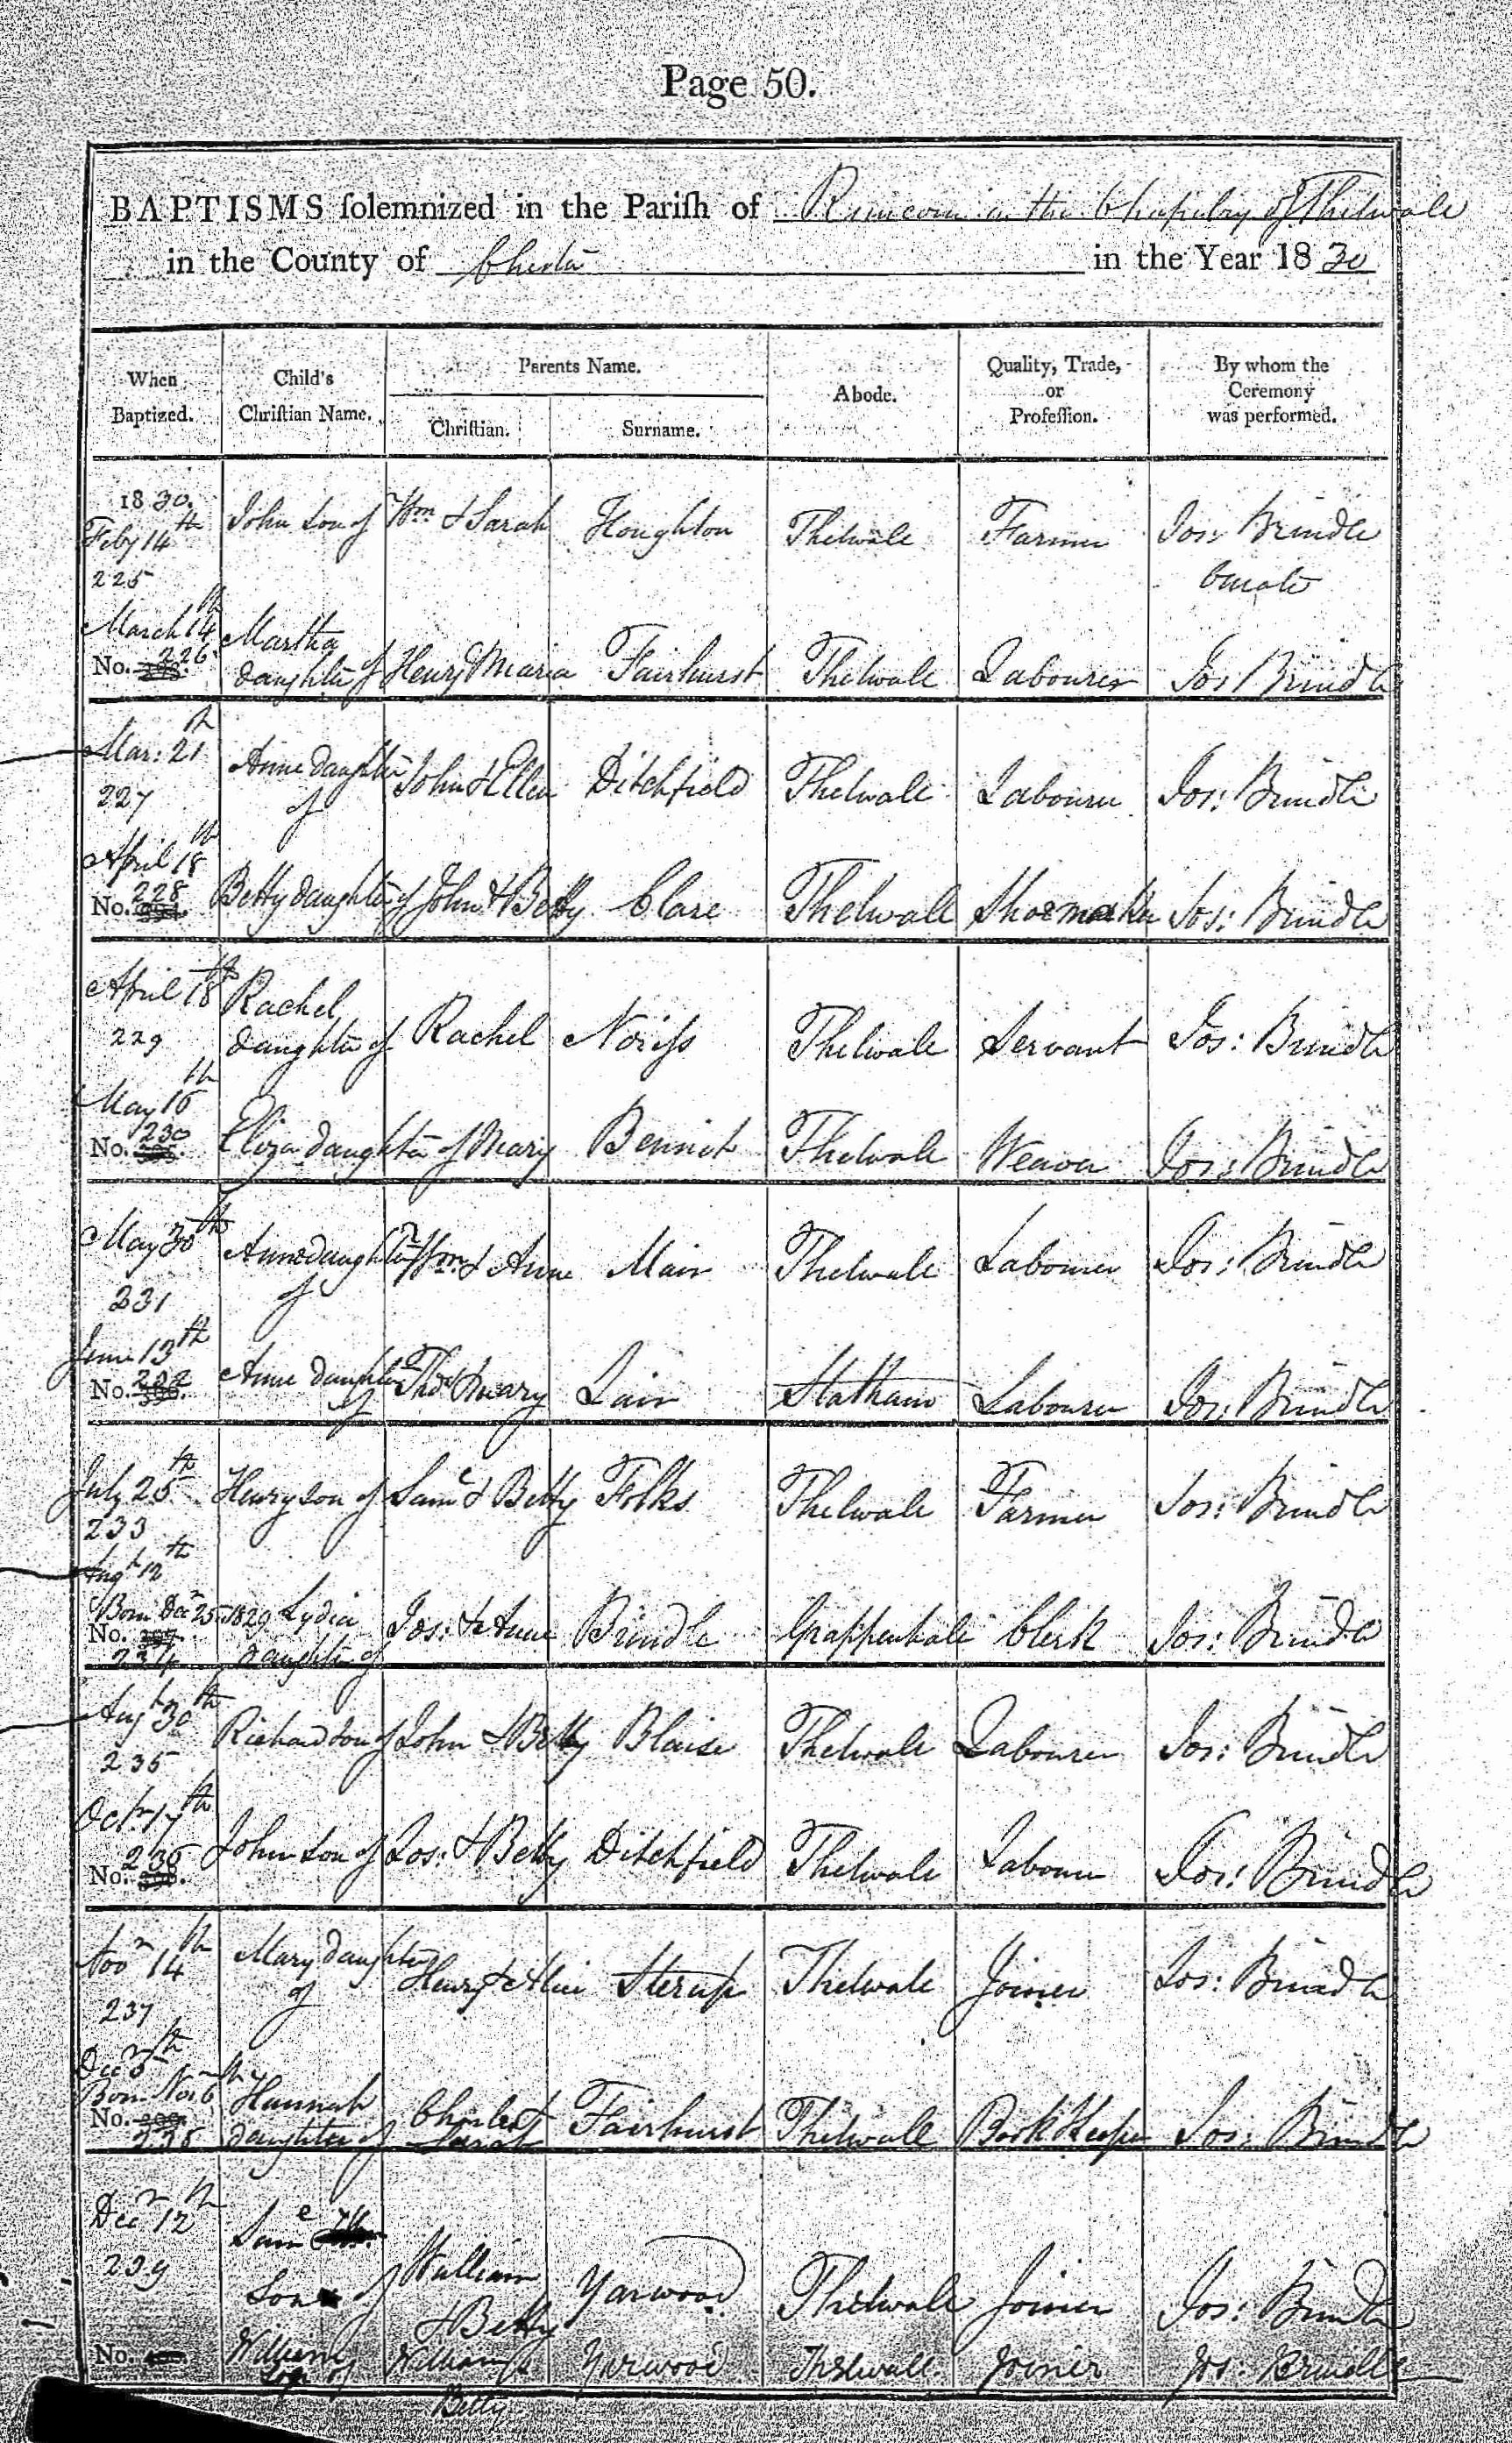 Page 50.
BAPTISMS solemnized in the Parish of Runcorn in the Chapelry of Thelwale
in the County of Chester in the Year 1830
When Baptized. Child's Christian Name. Parents Name. Christian. Surname. Abode. Quality, Trade, or Profession. By whom the Ceremony was performed.
1830.
Feby 14th John son of Wm & Sarah Houghton Thelwale Farmer Jos: Brindle
225 Curate
March 14th Martha
No. 226 daughter of Henry & Maria Fairhurst Thelwale Labourer Jos: Brindle
Mar: 21 Anne daughter John & Ellen Ditchfield Thelwale Labourer Jos: Brindle
227 of
April 18th
No. 228 Betty daughter of John & Betty Clare Thelwale Shoemaker Jos: Brindle
April 18th Rachel
229 daughter of Rachel Noriss Thelwale Servant Jos: Brindle
May 16th
No. 230 Eliza daughter of Mary Bennit Thelwale Weaver Jos: Brindle
May 30th Anne daughter Wm & Anne Mair Thelwale Labourer Jos: Brindle
231 of
June 13th
No. 232 Anne daughter Thos & Mary Lair Statham Labourer Jos: Brindle
of
July 25th Henry son of Saml & Betty Folks Thelwale Farmer Jos: Brindle
233
Augt 12th
Born Decr 25 1829 Lydia Jos: & Anne Brindle Grappenhale Clerk Jos: Brindle
No. 234 daughter of
Augt 30th Richard son of John & Betty Blaise Thelwale Labourer Jos: Brindle
235
Octr 17th
No. 236 John son of Jos: & Betty Ditchfield Thelwale Labourer Jos: Brindle
Novr 14th Mary daughter Henry & Alice Sterup Thelwale Joiner Jos: Brindle
237 of
Decr 5th
Born Nov 6th Hannah Charles &
No. 238 daughter of Sarah Fairhurst Thelwall Book Keeper Jos: Brindle
Decr 12th Saml
239 Son of William Yarwood Thelwale Joiner Jos: Brindle
& Betty
No. William William & Yarwood Thelwall Joiner Jos: Brindle
Son of Betty